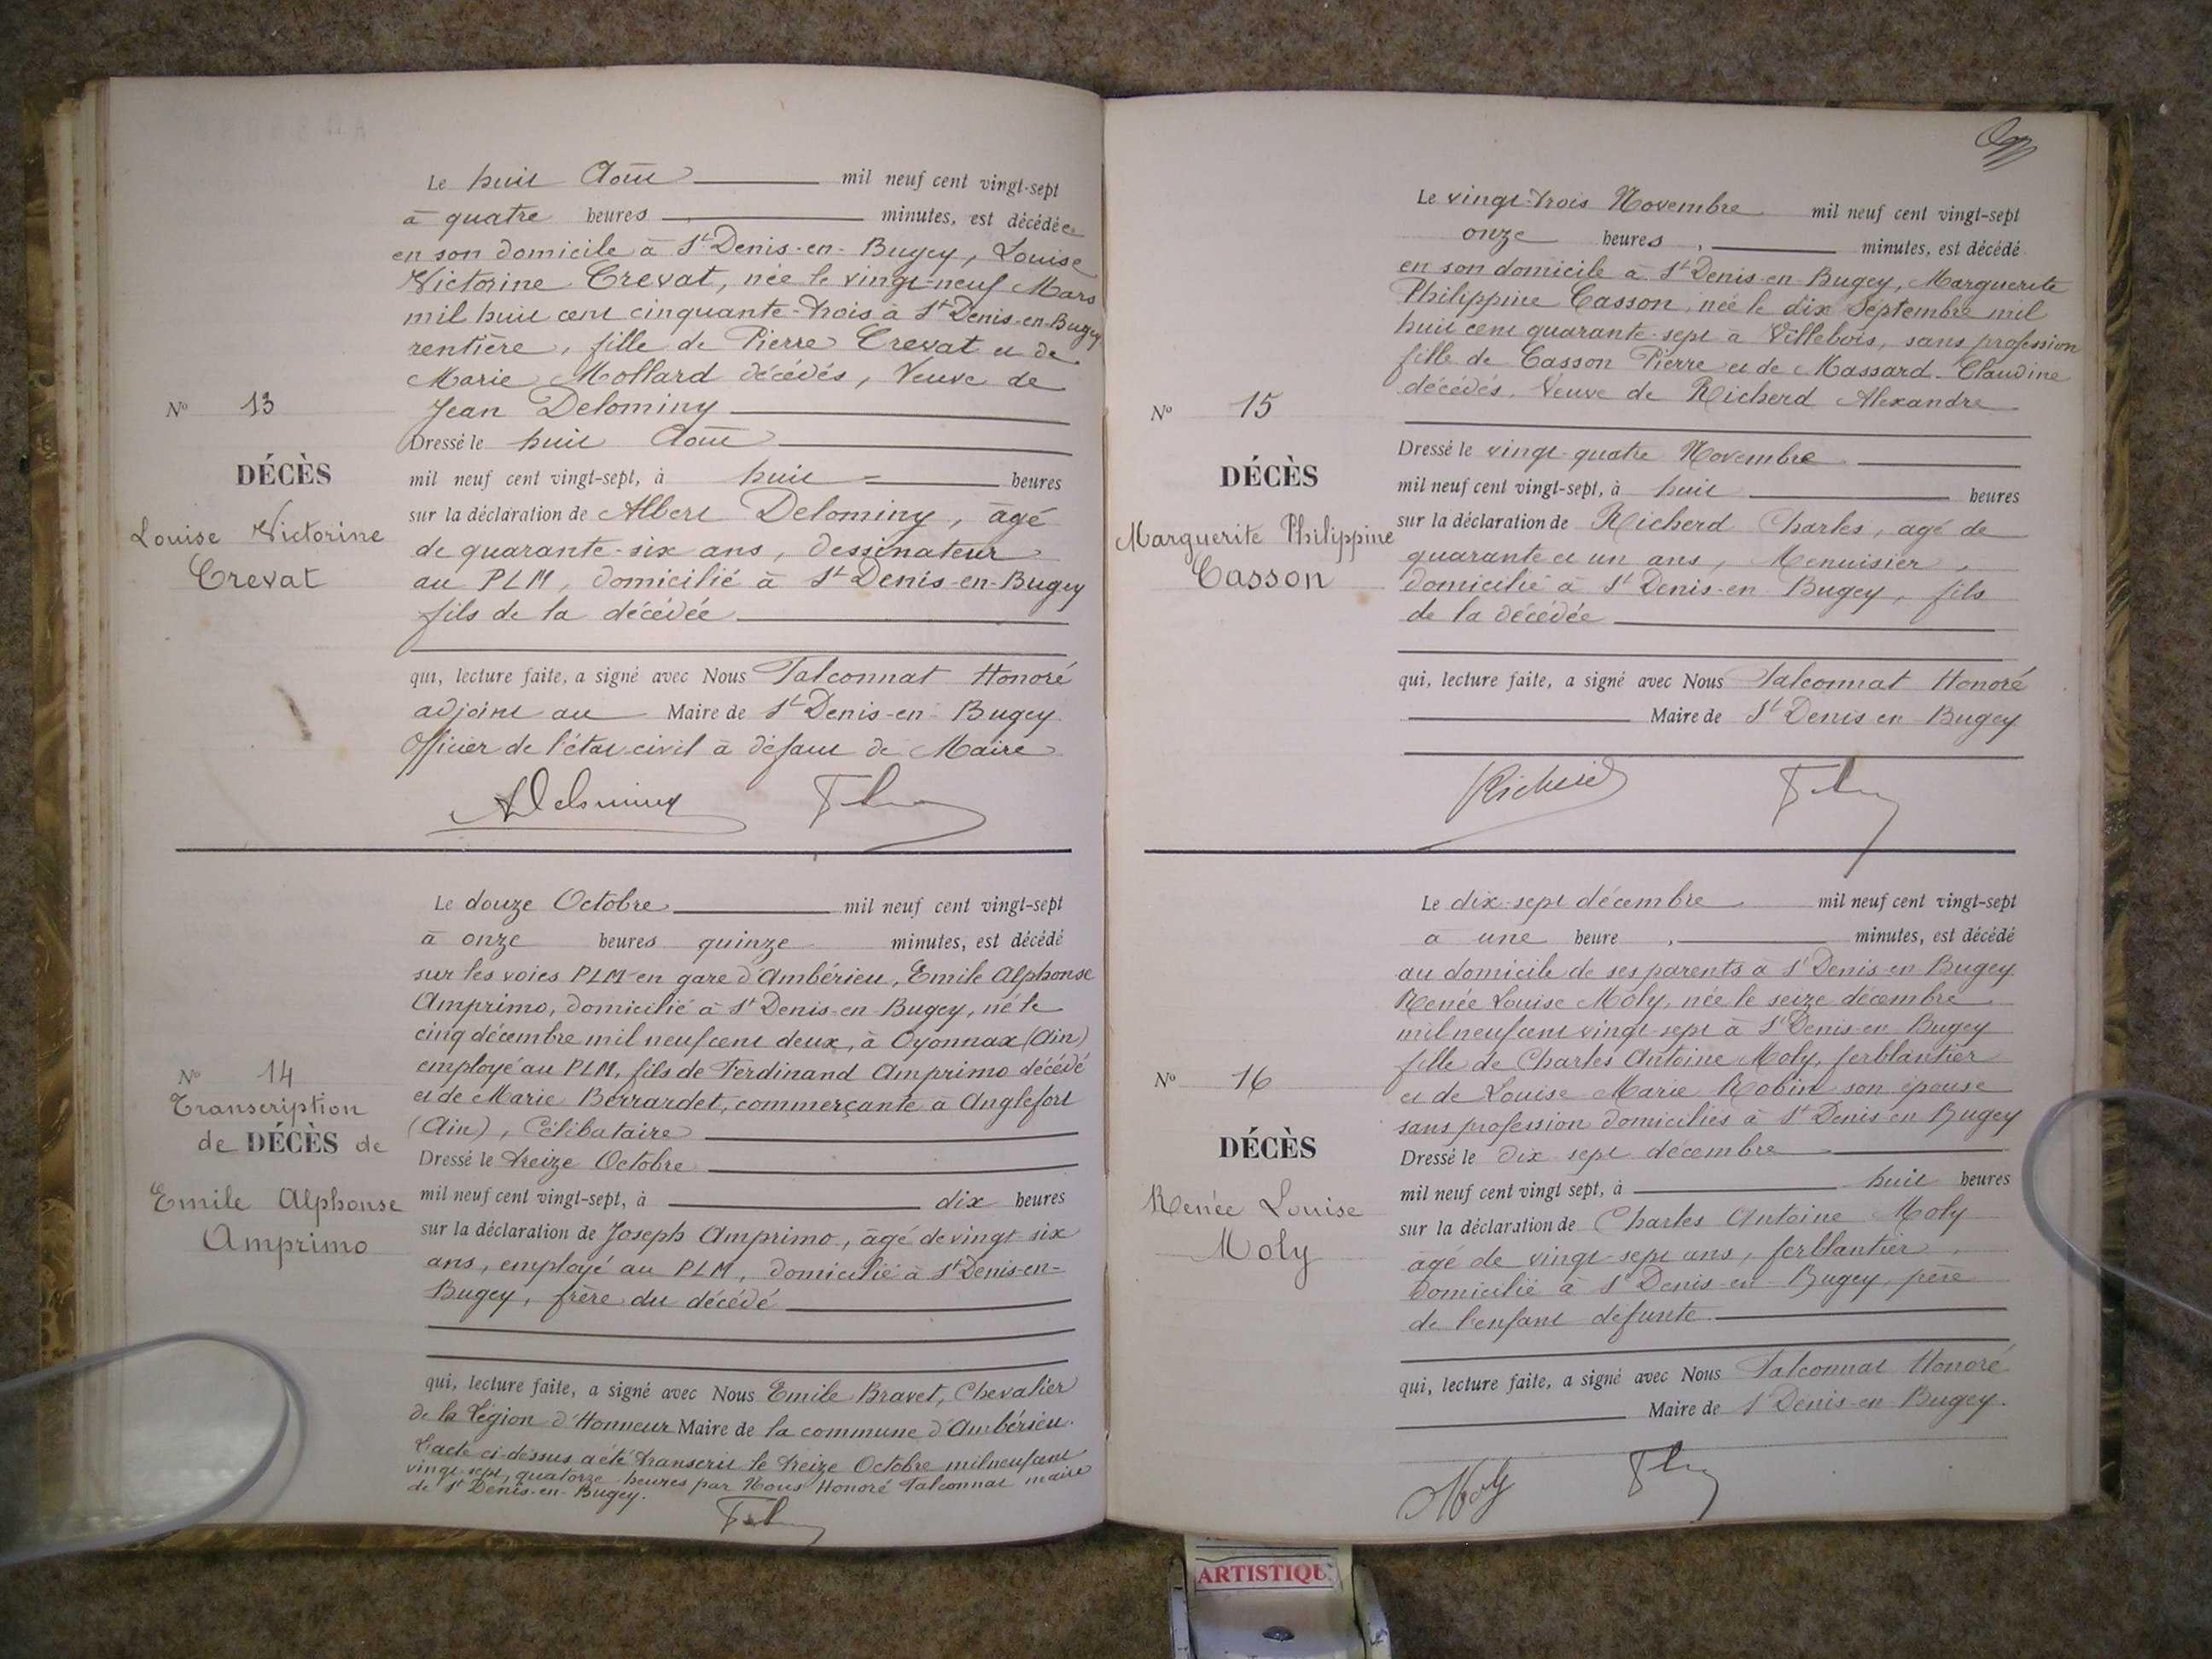 Le huit Août mil neuf cent vingt-sept
à quatre heures minutes, est décédée
en son domicile à St Denis-en-Bugey, Louise
Victorine Crevat, née le vingt-neuf Mars
mil huit cent cinquante-trois à St Denis-en-Bugey
rentière, fille de Pierre Crevat et de
Marie Mollard décédés, Veuve de
Jean Delominy
Nº 13
DÉCÈS
Louise Victorine
Crevat
Dressé le huit Août
mil neuf cent vingt-sept, à huit heures
sur la déclaration de Albert Delominy, âgé
de quarante-six ans, dessinateur
au PLM, domicilié à St Denis-en-Bugey
fils de la décédée
qui, lecture faite, a signé avec Nous Falconnat Honoré
adjoint au Maire de St Denis-en-Bugey
Officier de l'état-civil à défaut de Maire
ADelominy
Le douze Octobre mil neuf cent vingt-sept
à onze heures quinze minutes, est décédé
sur les voies PLM en gare d'Ambérieu, Emile Alphonse
Amprimo, domicilié à St Denis-en-Bugey, né le
cinq décembre mil neuf cent deux, à Oyonnax (Ain)
employé au PLM, fils de Ferdinand Amprimo décédé
et de Marie Berrardet, commerçante à Anglefort
(Ain), Célibataire
Nº 14
Transcription
de DÉCÈS de
Emile Alphonse
Amprimo
Dressé le treize Octobre
mil neuf cent vingt-sept, à dix heures
sur la déclaration de Joseph Amprimo, âgé de vingt-six
ans, employé au PLM, domicilié à St Denis-en-
Bugey, frère du décédé
qui, lecture faite, a signé avec Nous Emile Bravet, Chevalier
de la Légion d'Honneur Maire de la commune d'Ambérieu.
L'acte ci-dessus a été transcrit le treize Octobre mil neuf cent
vingt-sept, quatorze heures par Nous Honoré Falconnat maire
de St Denis-en-Bugey.
Le vingt-trois Novembre mil neuf cent vingt-sept
onze heures, minutes, est décédé
en son domicile à St Denis-en-Bugey, Marguerite
Philippine Casson, née le dix Septembre mil
huit cent quarante-sept à Villebois, sans profession
fille de Casson Pierre et de Massard Claudine
décédés, Veuve de Richerd Alexandre
Nº 15
DÉCÈS
Marguerite Philippine
Casson
Dressé le vingt-quatre Novembre
mil neuf cent vingt-sept, à huit heures
sur la déclaration de Richerd Charles, agé de
quarante et un ans, Menuisier,
domicilié à St Denis-en-Bugey, fils
de la décédée
qui, lecture faite, a signé avec Nous Falconnat Honoré
Maire de St Denis en Bugey
Richerd
Le dix-sept décembre mil neuf cent vingt-sept
à une heure, minutes, est décédé
au domicile de ses parents à St Denis-en-Bugey
Renée Louise Moly, née le seize décembre
mil neuf cent vingt-sept à St Denis-en-Bugey
fille de Charles Antoine Moly, ferblantier
et de Louise Marie Robin son épouse
sans profession domiciliés à St Denis en Bugey
Nº 16
DÉCÈS
Renée Louise
Moly
Dressé le dix-sept décembre
mil neuf cent vingt sept, à huit heures
sur la déclaration de Charles Antoine Moly
agé de vingt-sept ans, ferblantier,
domicilié à St Denis-en-Bugey, père
de l'enfant défunte.
qui, lecture faite, a signé avec Nous Falconnat Honoré
Maire de St Denis-en-Bugey.
Moly
ARTISTIQU